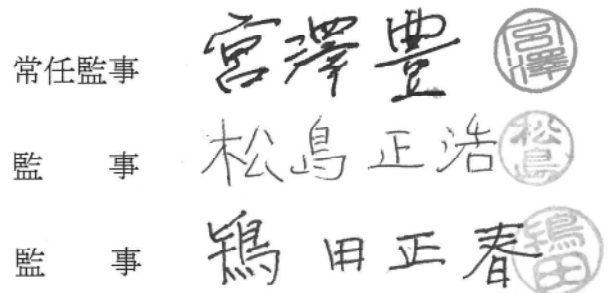 常任監事 宮澤豊 宮澤
監事 松島正浩 松島
監事 鵇田正春 鵇田